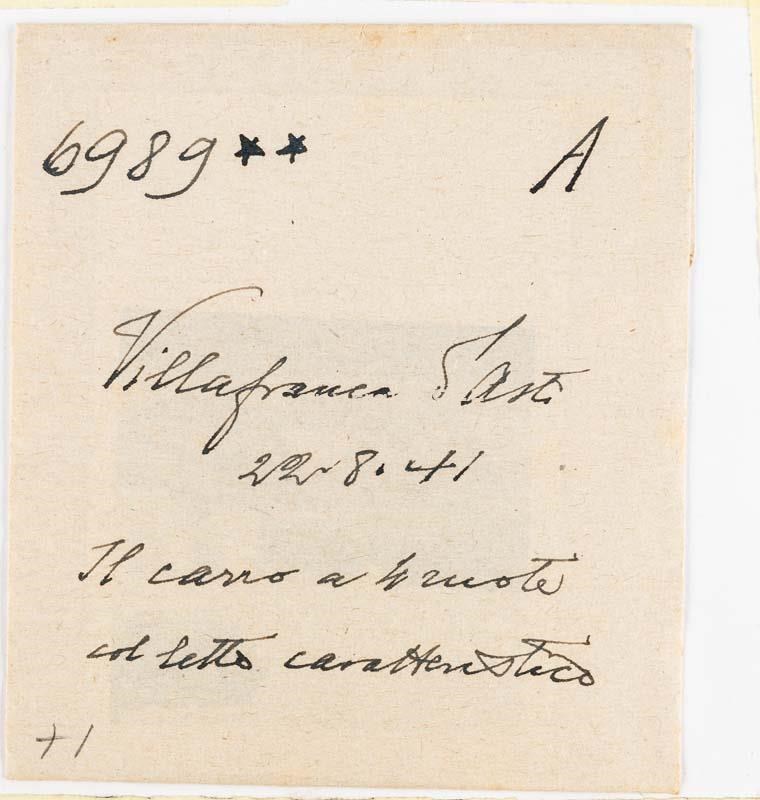 6989 ★★ A
Villafranca d'Asti
22.8.41
Il carro a 4 ruote
col letto caratteristico
+1